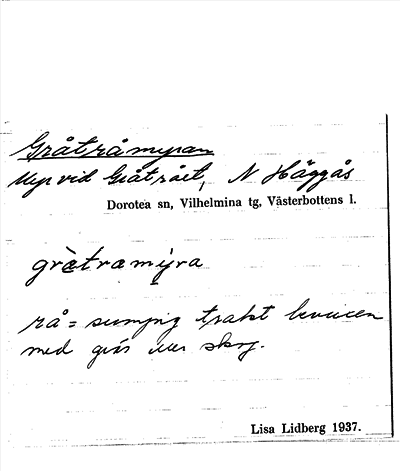 Gråtråmyran
Myr vid Gråtrået, N Häggås
Dorotea sn, Vilhelmina tg, Västerbottens l.
grètramyra
rå = sumpig trakt
med gräs skog.
Lisa Lidberg 1937.